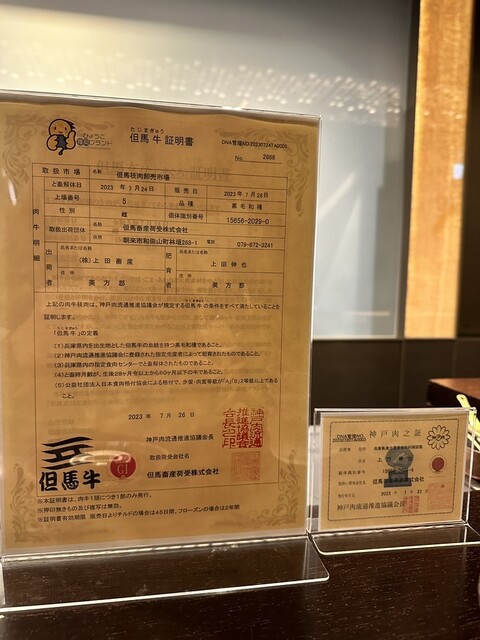 ひょうご
推奨ブランド
たじまぎゅう
但馬牛証明書
DNA管理NO.20230724TA0005
No. 2668
取扱市場 名称 但馬枝肉卸売市場
と畜解体日 2023年 7月24日 販売日 2023年 7月26日
上場番号 5 品種 黒毛和種
性別 雌 個体識別番号 15656-2029-0
取扱出荷団体 名称 但馬畜産荷受株式会社
住所 朝来市和田山町林垣268-1 電話 079-672-3241
肉牛明細
出荷者 氏名または名称 (株)上田畜産 肥育者 氏名または名称 上田伸也
住所 美方郡 住所 美方郡
上記の肉牛枝肉は、神戸肉流通推進協議会が規定する但馬牛の条件をすべて満たしていることを
証明します。
たじまぎゅう
「但馬牛」の定義
(1)兵庫県内を出生地とした但馬牛の血統を持つ黒毛和種であること。
(2)神戸肉流通推進協議会に登録された指定生産者によって肥育されたものであること。
(3)兵庫県内の指定食肉センターでと畜解体されたものであること。
(4)と畜時月齢が、生後28ヶ月令以上から60ヶ月以下の牛であること。
(5)公益社団法人日本食肉格付協会による格付で、歩留・肉質等級が「A」「B」2等級以上である
こと。
2023年 7月 26日
神戸肉流通推進協議会長
取扱荷受会社名
但馬畜産荷受株式会社
GI
但馬牛
※本証明書は、肉牛1頭につき1部のみ発行。
※押印無きもの及び複写は無効。
※証明書有効期限 販売日よりチルドの場合は45日間、フローズンの場合は2年間
神戸肉之証
DNA管理NO.
神戸肉流通推進協議会